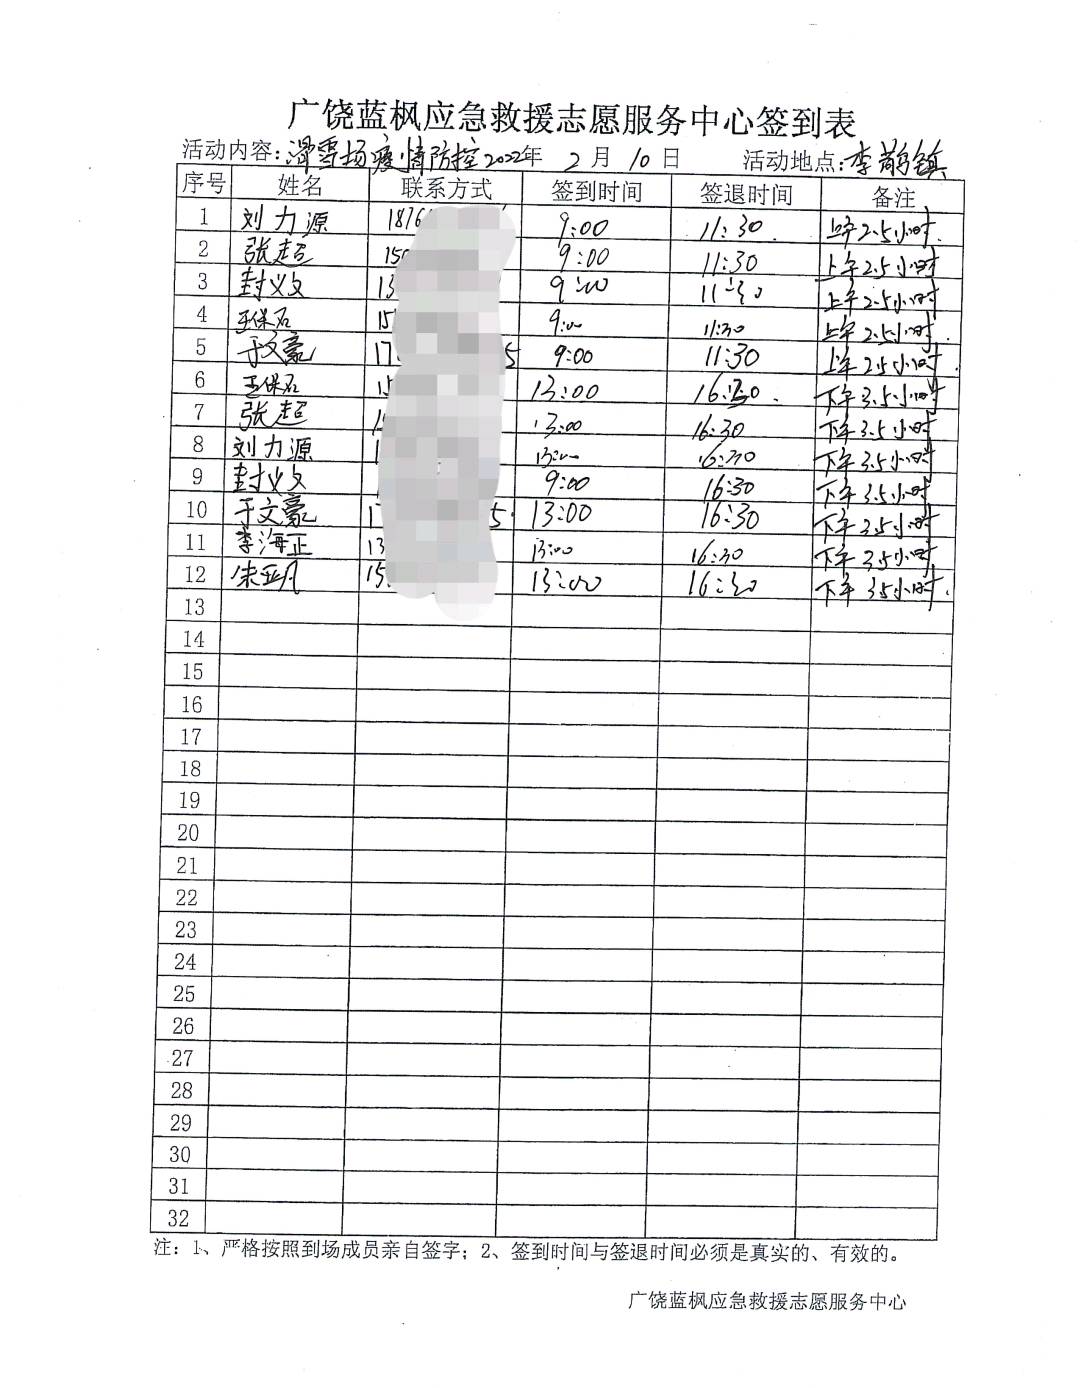 广饶蓝枫应急救援志愿服务中心签到表
活动内容:滑雪场疫情防控2022年 2月10日 活动地点:李鹊镇
序号 姓名 联系方式 签到时间 签退时间 备注
1 刘力源 1876 9:00 11:30. 上午2.5小时.
2 张超 150 9:00 11:30 上午2.5小时
3 封义文 13 9:00 11:30 上午2.5小时
4 王保石 15 9:00 11:30 上午2.5小时
5 于文豪 17 5 9:00 11:30 上午2.5小时.
6 王保石 15 13:00 16:30. 下午3.5小时
7 张超 13:00 16:30 下午3.5小时
8 刘力源 1 13:00 16:30 下午3.5小时
9 封义文 9:00 16:30 下午3.5小时
10 于文豪 17 5 13:00 16:30 下午3.5小时
11 李海正 13 13:00 16:30 下午3.5小时
12 朱亚凡 15 13:00 16:30 下午3.5小时.
13
14
15
16
17
18
19
20
21
22
23
24
25
26
27
28
29
30
31
32
注：1、严格按照到场成员亲自签字；2、签到时间与签退时间必须是真实的、有效的。
广饶蓝枫应急救援志愿服务中心